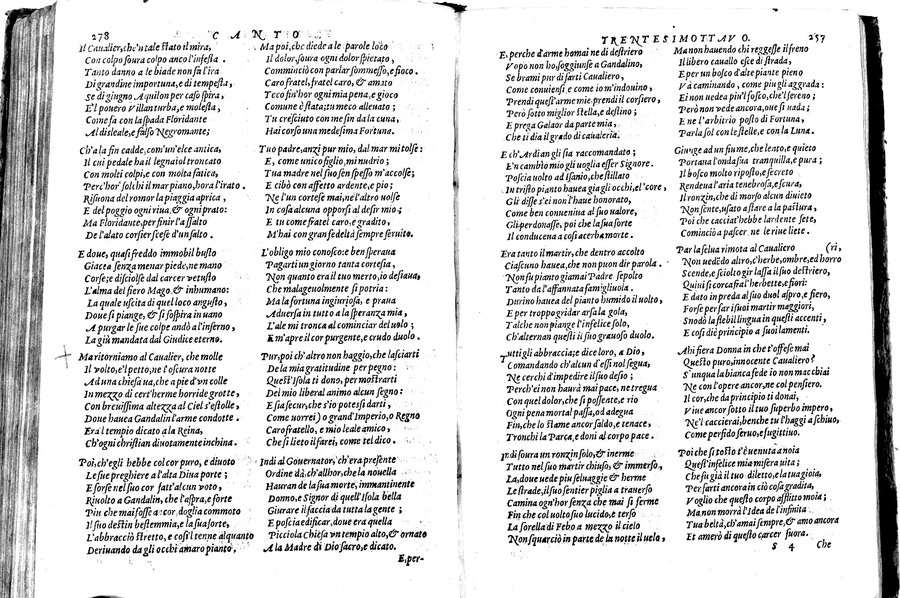 278 CANTO
Il Caualier, che'n tale stato il mira,
Con colpo soura colpo anco l'infesta.
Tanto danno a le biade non fa l'ira
Di grandine importuna, e di tempesta,
Se di giugno Aquilon per caso spira,
E'l pouero Villan turba, e molesta,
Come fa con la spada Floridante
Al disleale, e falso Negromante;
Ch'a la fin cadde, com'un'elce antica,
Il cui pedale ha il legnaiol troncato
Con molti colpi, e con molta fatica,
Perc'hor' solchi il mar piano, hora l'irato.
Risuona del romor la piaggia aprica,
E del poggio ogni riua, & ogni prato:
Ma Floridante, per finir l'assalto
De l'alato corsier scese d'un salto.
E doue, quasi freddo immobil busto
Giacea senza menar piede, ne mano
Corse; e disciolse dal carcer vetusto
L'alma del fiero Mago, & inhumano:
La quale uscita di quel loco angusto,
Doue si piange, & si sospira in uano
A purgar le sue colpe andò a l'inferno,
La giù mandata dal Giudice eterno.
Ma ritorniamo al Caualier, che molle
Il volto, e'l petto, ne l'oscura notte
Ad una chiesa ua, che a piè d'vn colle
In mezzo di cert'herme horride grotte,
Con breuissima altezza al Ciel s'estolle,
Doue hauea Gandalin l'arme condotte.
Era il tempio dicato a la Reina,
Ch'ogni christian diuotamente inchina.
Poi, ch'egli hebbe col cor puro, e diuoto
Le sue preghiere a l'alta Diua porte;
E forse nel suo cor fatt'alcun voto,
Riuolto a Gandalin, che l'aspra, e forte
Piu che mai fosse a cor, doglia commoto
Il suo destin bestemmia, e la sua sorte,
L'abbracciò stretto, e così'l tenne alquanto
Deriuando da gli occhi amaro pianto,
Ma poi, che diede a le parole loco
Il dolor, soura ogni dolor spietato,
Comminciò con parlar sommesso, e fioco.
Caro fratel, fratel caro, & amato
Teco fin hor ogni mia pena, e gioco
Comune è stata; tu meco alleuato;
Tu cresciuto con me sin da la cuna,
Hai corso una medesima Fortuna.
Tuo padre, anzi pur mio, dal mar mi tolse:
E, come unico figlio, mi nudrio;
Tua madre nel suo sen spesso m'accolse;
E cibò con affetto ardente, e pio;
Ne l'un cortese mai, ne l'altro uolse
In cosa alcuna opporsi al desir mio;
E tu come fratel caro, e gradito,
M'hai con gran fede dà sempre seruito.
L'obligo mio conosco: e ben speraua
Pagarti un giorno tanta cortesia,
Non quanto era il tuo merto, io desiaua,
Che malageuolmente si potria:
Ma la fortuna ingiuriosa, e praua
Aduersa in tutto a la speranza mia,
L'ale mi tronca al cominciar del uolo;
E m'apre il cor purgente, e crudo duolo.
Pur, poi ch'altro non haggio, che lasciarti
De la mia gratitudine per pegno:
Quest'Isola ti dono, per mostrarti
Del mio liberal animo alcun segno:
E sia secur, che s'io potessi darti,
Come uorrei) o grand'Imperio, o Regno
Caro fratello, e mio leale amico,
Che si lieto il farei, come tel dico.
Indi al Gouernator, ch'era presente
Ordine dà, ch'allhor, che la nouella
Hauran de la sua morte, imminentente
Donno, e Signor di quell'Isola bella
Giurare il faccia da tutta la gente;
E poscia edificar, doue era quella
Picciola Chiesa vn tempio alto, & ornato
A la Madre di Dio sacro, e dicato.
E, per-
TRENTESIMOTTAVO. 257
E, perche d'arme homai ne di destriero
Vopo non ho, soggiunse a Gandalino,
Se brami pur di farti Caualiero,
Come conuiensi, e come io m'indouino,
Prendi quest'arme mie, prendi il corsiero,
Però sotto miglior stella, e destino;
E prega Galaor da parte mia,
Che ti dia il grado di caualeria.
E ch'Ardian gli sia raccomandato;
E'n cambio mio gli uoglia esser Signore.
Poscia uolto ad Isanio, che stillato
In tristo pianto hauea gia gli occhi, e'l core,
Gli disse s'ei non l'haue honorato,
Come ben conueniua al suo ualore,
Gli perdonasse, poi che la sua sorte
Il conduceua a così acerba morte.
Era tanto il martir, che dentro accolto
Ciascuno hauea, che non puon dir parola.
Non fu pianto giamai Padre sepolto
Tanto da l'affannata famigliuola.
Durino hauea del pianto humido il uolto,
E per troppo gridar arsa la gola,
Talche non piange l'infelice solo,
Ch'alternan questi il suo grauoso duolo.
Tutti gli abbraccia; e dice loro, a Dio,
Comandando ch'alcun d'essi nol segua,
Ne cerchi d'impedire il suo desio;
Perch'ei non haurà mai pace, ne tregua
Con quel dolor, che si possente, e rio
Ogni pena mortal passa, od adegua
Fin, che lo stame ancor saldo, e tenace,
Tronchi la Parca, e doni al corpo pace.
Indi soura un ronzin solo, & inerme
Tutto nel suo martir chiuso, & immerso,
La, doue uede piu seluagge & herme
Le strade, il suo sentier piglia a trauerso
Camina ogn'hor senza che mai si ferme
Fin che col uolto suo lucido, e terso
La sorella di Febo a mezzo il cielo
Non squarciò in parte de la notte il uelo,
Ma non hauendo chi reggesse il freno
Il libero cauallo esce di strada,
E per un bosco d'alte piante pieno
Và caminando, come piu gli aggrada:
Ei non uedea piu'l fosco, che'l sereno;
Però non vede ancora, oue si uada;
E ne l'arbitrio posto di Fortuna,
Parla sol con le stelle, e con la Luna.
Giunge ad un fiume, che lento, e quieto
Portana l'onda sua tranquilla, e pura;
Il bosco molto riposto, e secreto
Rendeua l'aria tenebrosa, e scura,
Il ronzin, che di morso alcun diuieto
Non sente, usato a stare a la pastura,
Poi che cacciat'hebbe l'ardente sete,
Cominciò a pascer ne le riue liete.
Par la selua rimota al Caualiero (ri,
Non uedēdo altro, c'herbe, ombre, ed horro
Scende, e sciolto gir lassa il suo destriero,
Qui ui si corca fra l'herbette, e fiori:
E dato in preda al suo duol aspro, e fiero,
Forse per far i suoi martir maggiori,
Snodò la flebil lingua in questi accenti,
E così diè principio a suoi lamenti.
Ahi fiera Donna in che t'offese mai
Questo puro, innocente Caualiero?
S'unqua la bianca fede io non macchiai
Ne con l'opere ancor, ne col pensiero.
Il cor, che da principio ti donai,
Viue ancor sotto il tuo superbo impero,
Ne'l cacciarei, benche tu l'haggi a schiuo,
Come perfido seruo, e fuggitiuo.
Poi che sì tosto t'è uenuta a noia
Quest'infelice mia misera uita;
Che fu già il tuo diletto, e la tua gioia,
Per farti ancora in ciò cosa gradita,
Voglio che questo corpo afflitto moia;
Ma non morrà l'Idea de l'infinita
Tua beltà, ch'amai sempre, & amo ancora
Et amerò di questo carcer fuora.
S 4 Che